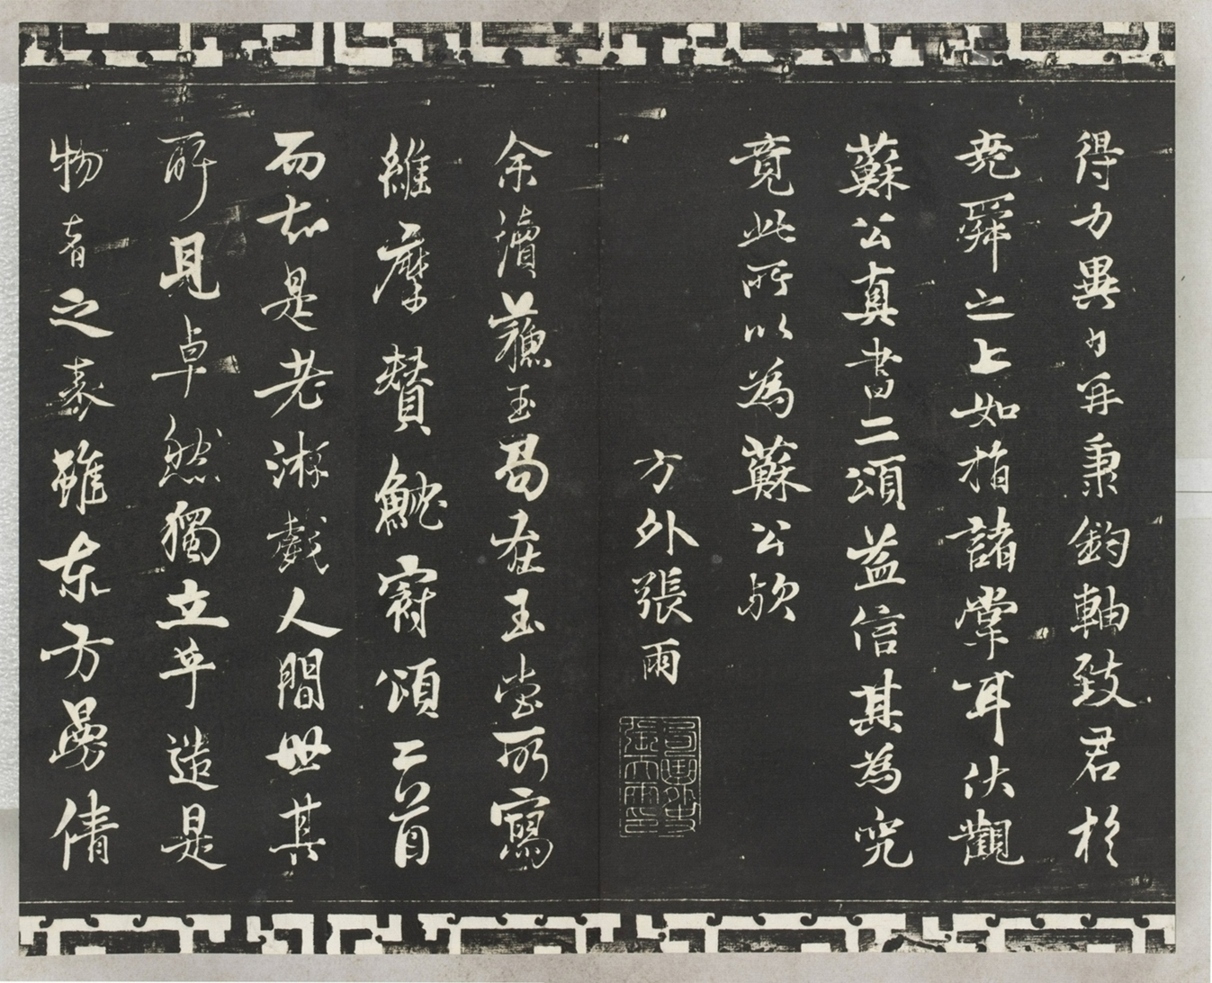 得力異日再秉鈞軸致君於
堯舜之上如指諸掌耳伏觀
蘇公真書二頌益信其為究
竟此所以為蘇公歟
方外張雨
句曲外史
張天雨印
余讀蘓玉局在玉堂所寫
維摩贊魫冠頌二首
而知是老游戲人間世其
所見卓然獨立乎造是
物者之表雖東方曼倩